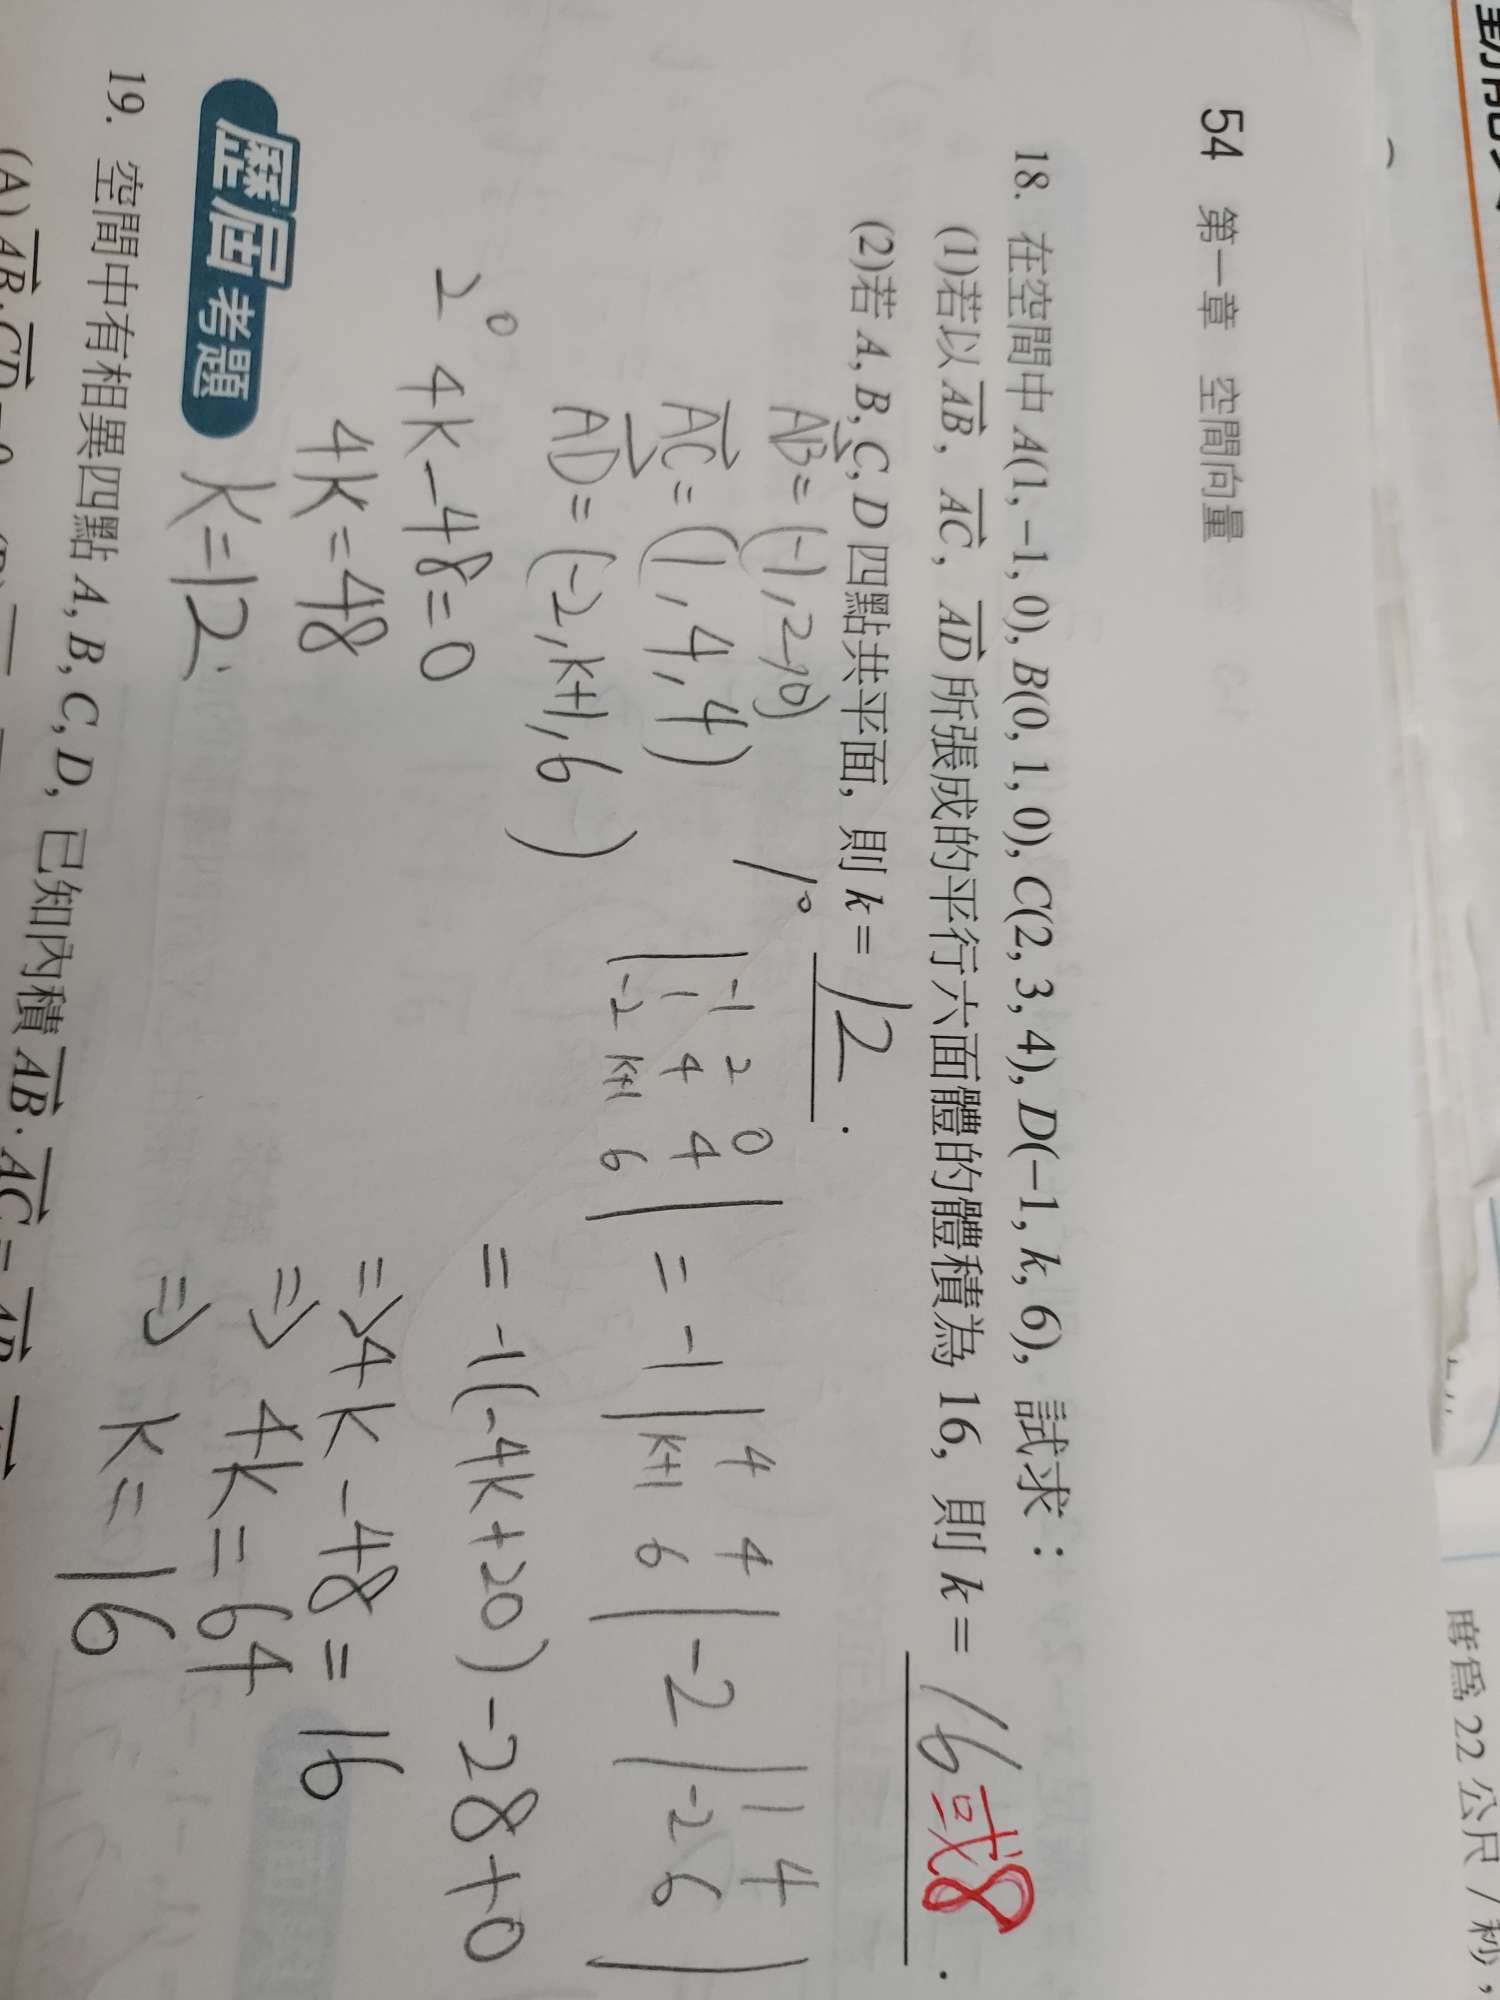 54 第一章 空間向量
18. 在空間中 A(1, −1, 0), B(0, 1, 0), C(2, 3, 4), D(−1, k, 6), 試求：
(1)若以 AB, AC, AD 所張成的平行六面體的體積為 16, 則 k = 16或8.
(2)若 A, B, C, D 四點共平面, 則 k = 12.
AB = (-1, 2, 0)
AC = (1, 4, 4)
AD = (-2, k+1, 6)
1° | -1 2 0 |
| 1 4 4 |
| -2 k+1 6 |
= -1 | 4 4 | -2 | 1 4 |
| k+1 6 | | -2 6 |
= -1(-4k+20) -28+0
⇒ 4k - 48 = 16
⇒ 4k = 64
⇒ k = 16
2° 4k-48=0
4k=48
k=12
歷屆考題
19. 空間中有相異四點 A, B, C, D, 已知內積 AB · AC =
(A) AB · CD
公尺 / 秒,
22